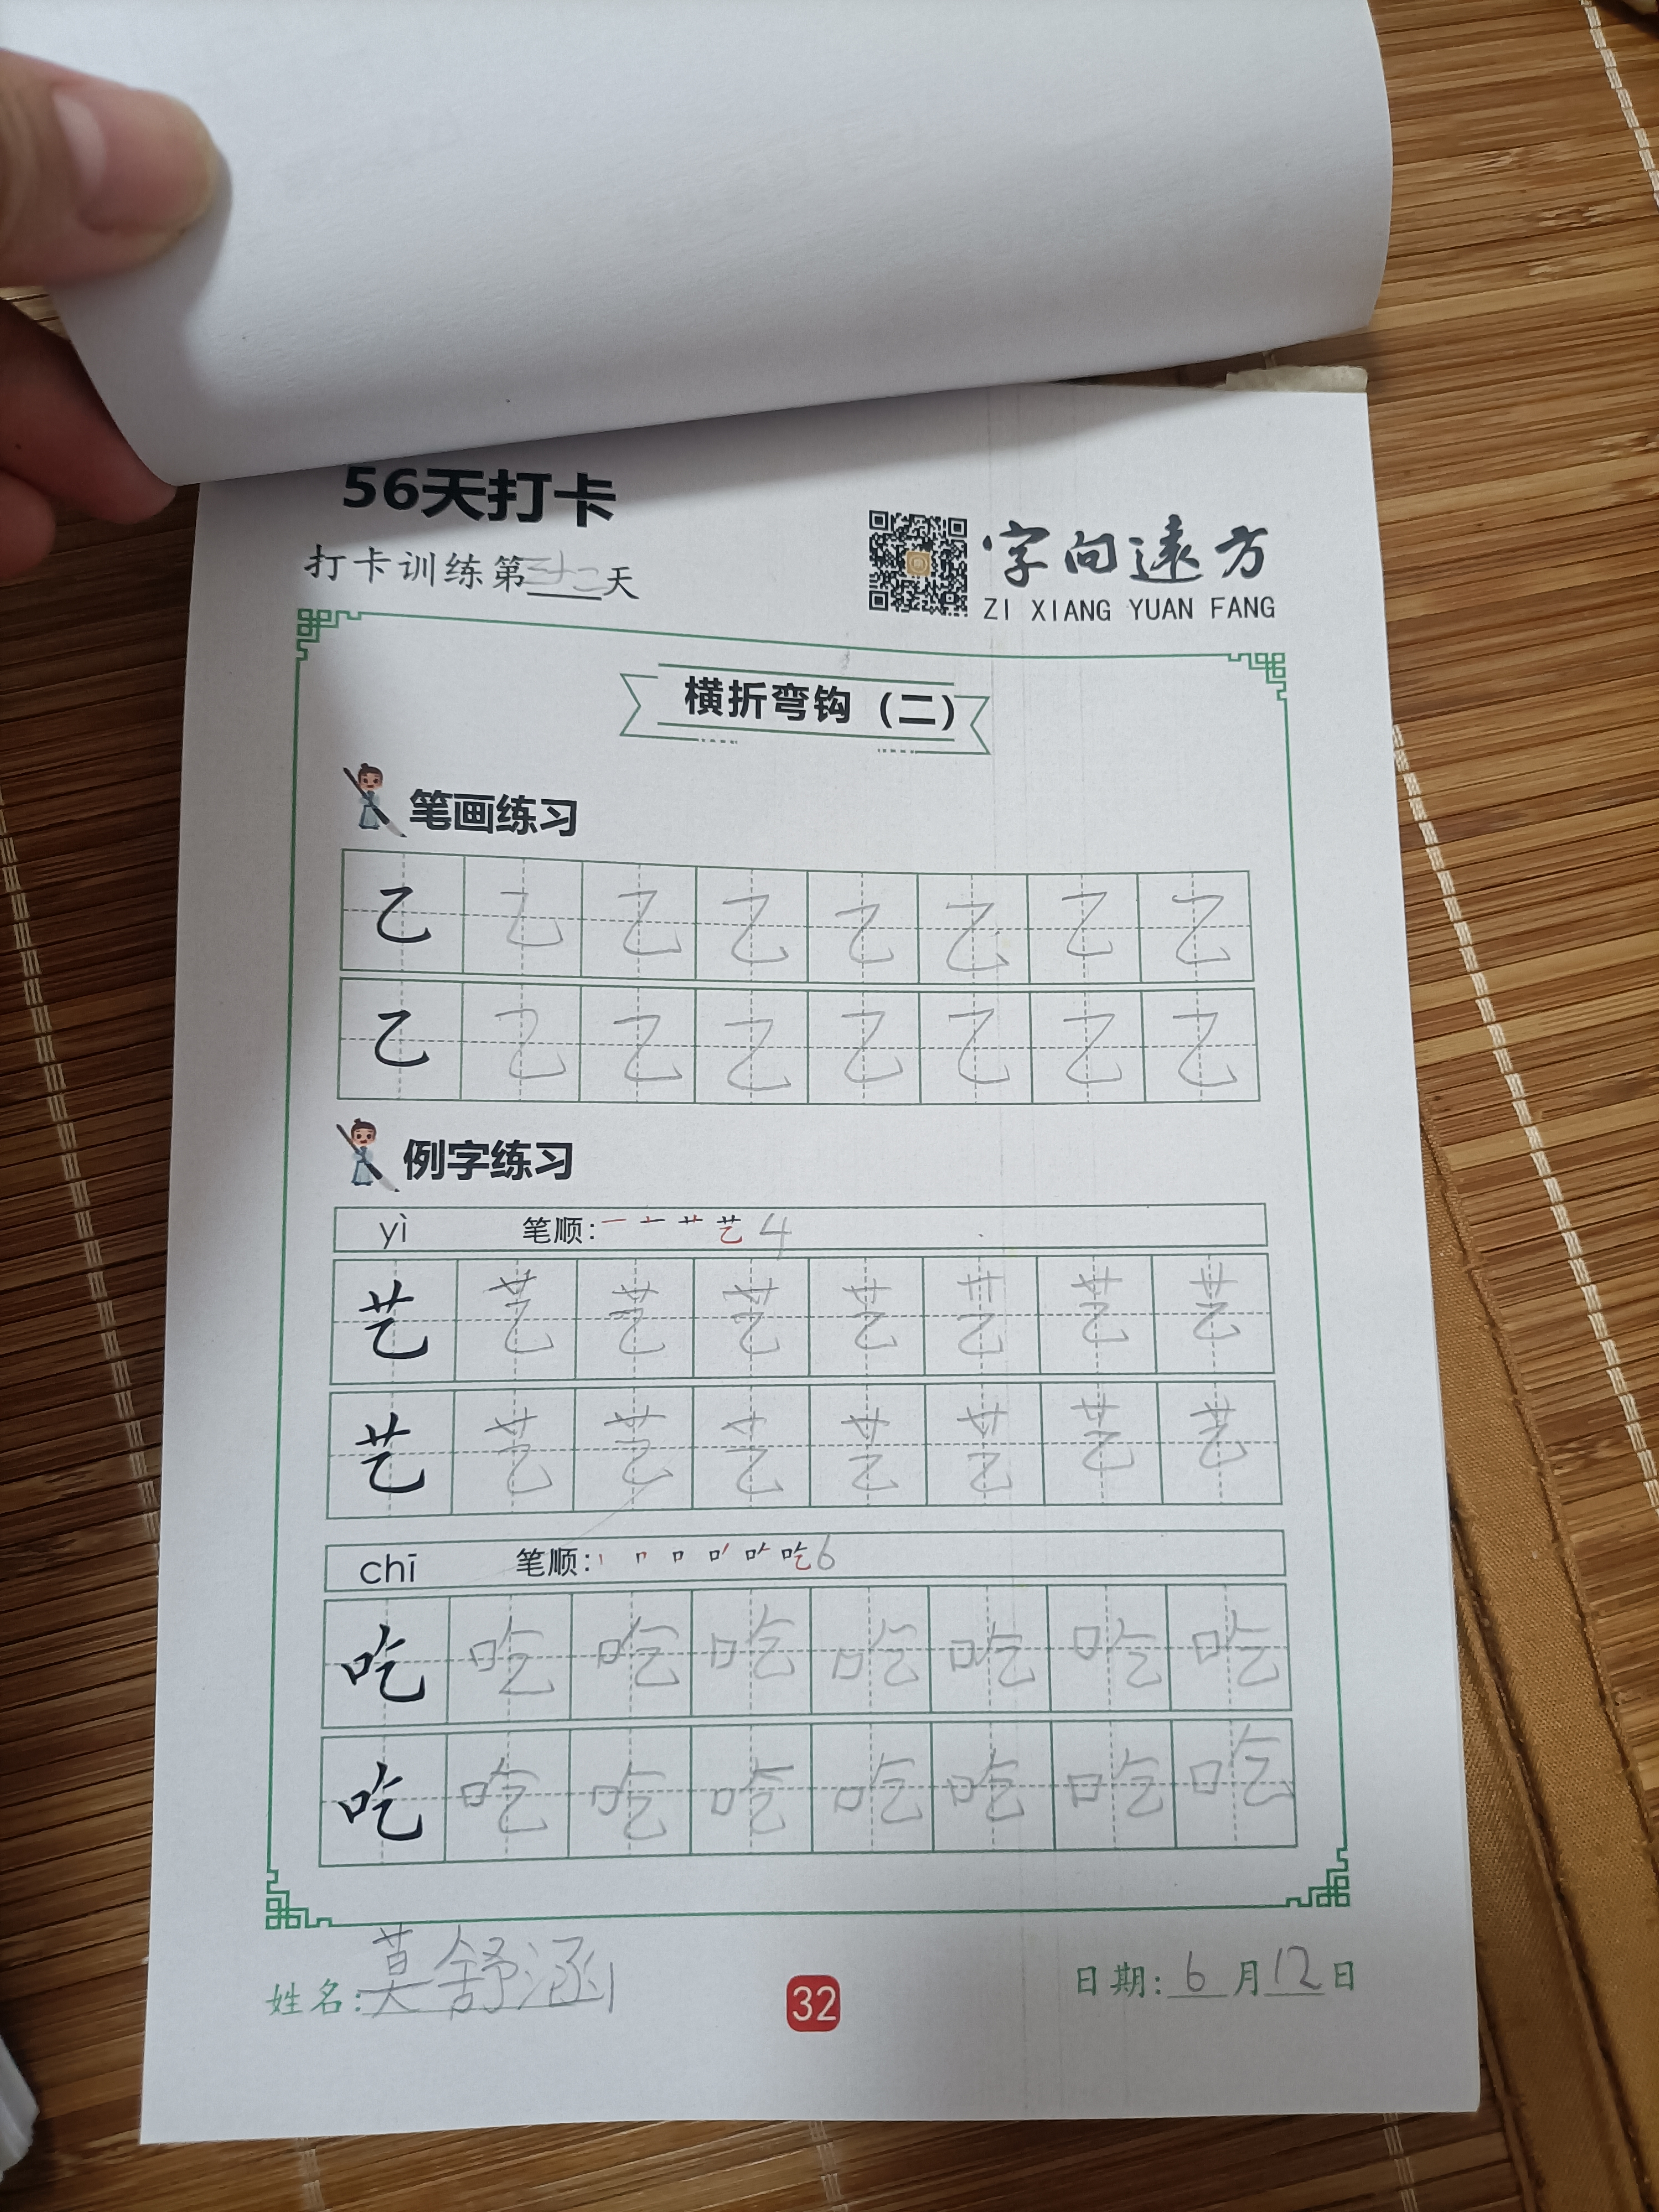 56天打卡
打卡训练第三十二天
字向远方
ZI XIANG YUAN FANG
横折弯钩（二）
笔画练习
乙 乙 乙 乙 乙 乙 乙 乙
乙 乙 乙 乙 乙 乙 乙 乙
例字练习
yì 笔顺: 艺 4
艺 艺 艺 艺 艺 艺 艺 艺
艺 艺 艺 艺 艺 艺 艺 艺
chī 笔顺: 吃 6
吃 吃 吃 吃 吃 吃 吃 吃
吃 吃 吃 吃 吃 吃 吃 吃
姓名: 莫舒涵
32
日期: 6月12日